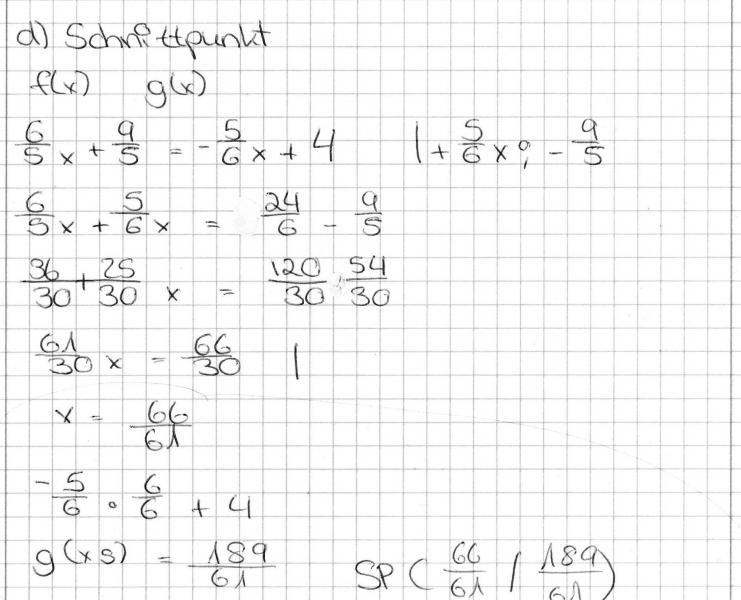 d) Schnittpunkt
f(x) g(x)
6/5 x + 9/5 = - 5/6 x + 4 | + 5/6 x ; - 9/5
6/5 x + 5/6 x = 24/6 - 9/5
36/30 + 25/30 x = 120/30 54/30
61/30 x = 66/30 |
x = 66/61
- 5/6 · 6/6 + 4
g(xs) = 189/61 SP ( 66/61 / 189/61 )